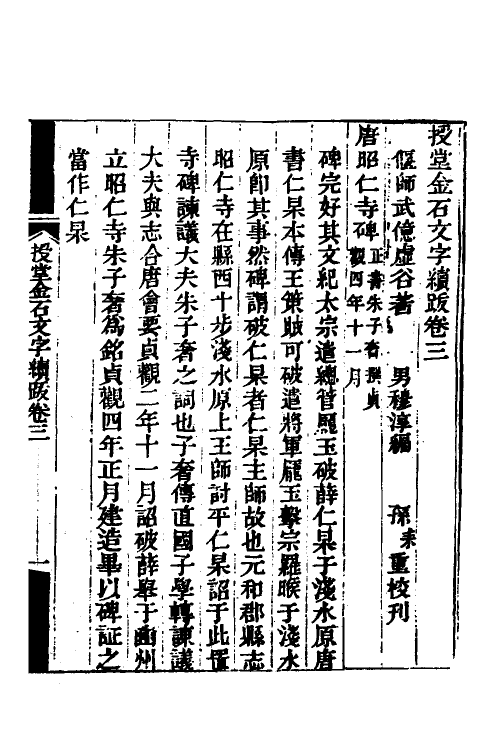 授堂金石文字續跋卷三
偃師武億虛谷著　男穆淳編　孫耒重校刊
唐昭仁寺碑正書朱子奢撰貞觀四年十一月
碑完好其文紀太宗遣總管龎玉破薛仁杲于淺水原唐
書仁杲本傳王策賊可破遣將軍龎玉擊宗羅睺于淺水
原卽其事然碑謂破仁杲者仁杲主師故也元和郡縣志
昭仁寺在縣西十步淺水原上王師討平仁杲詔于此置
寺碑諫議大夫朱子奢之詞也子奢傳直國子學轉諫議
大夫與志合唐會要貞觀二年十一月詔破薛舉于豳州
立昭仁寺朱子奢爲銘貞觀四年正月建造畢以碑証之
當作仁杲
授堂金石文字續跋卷三
一